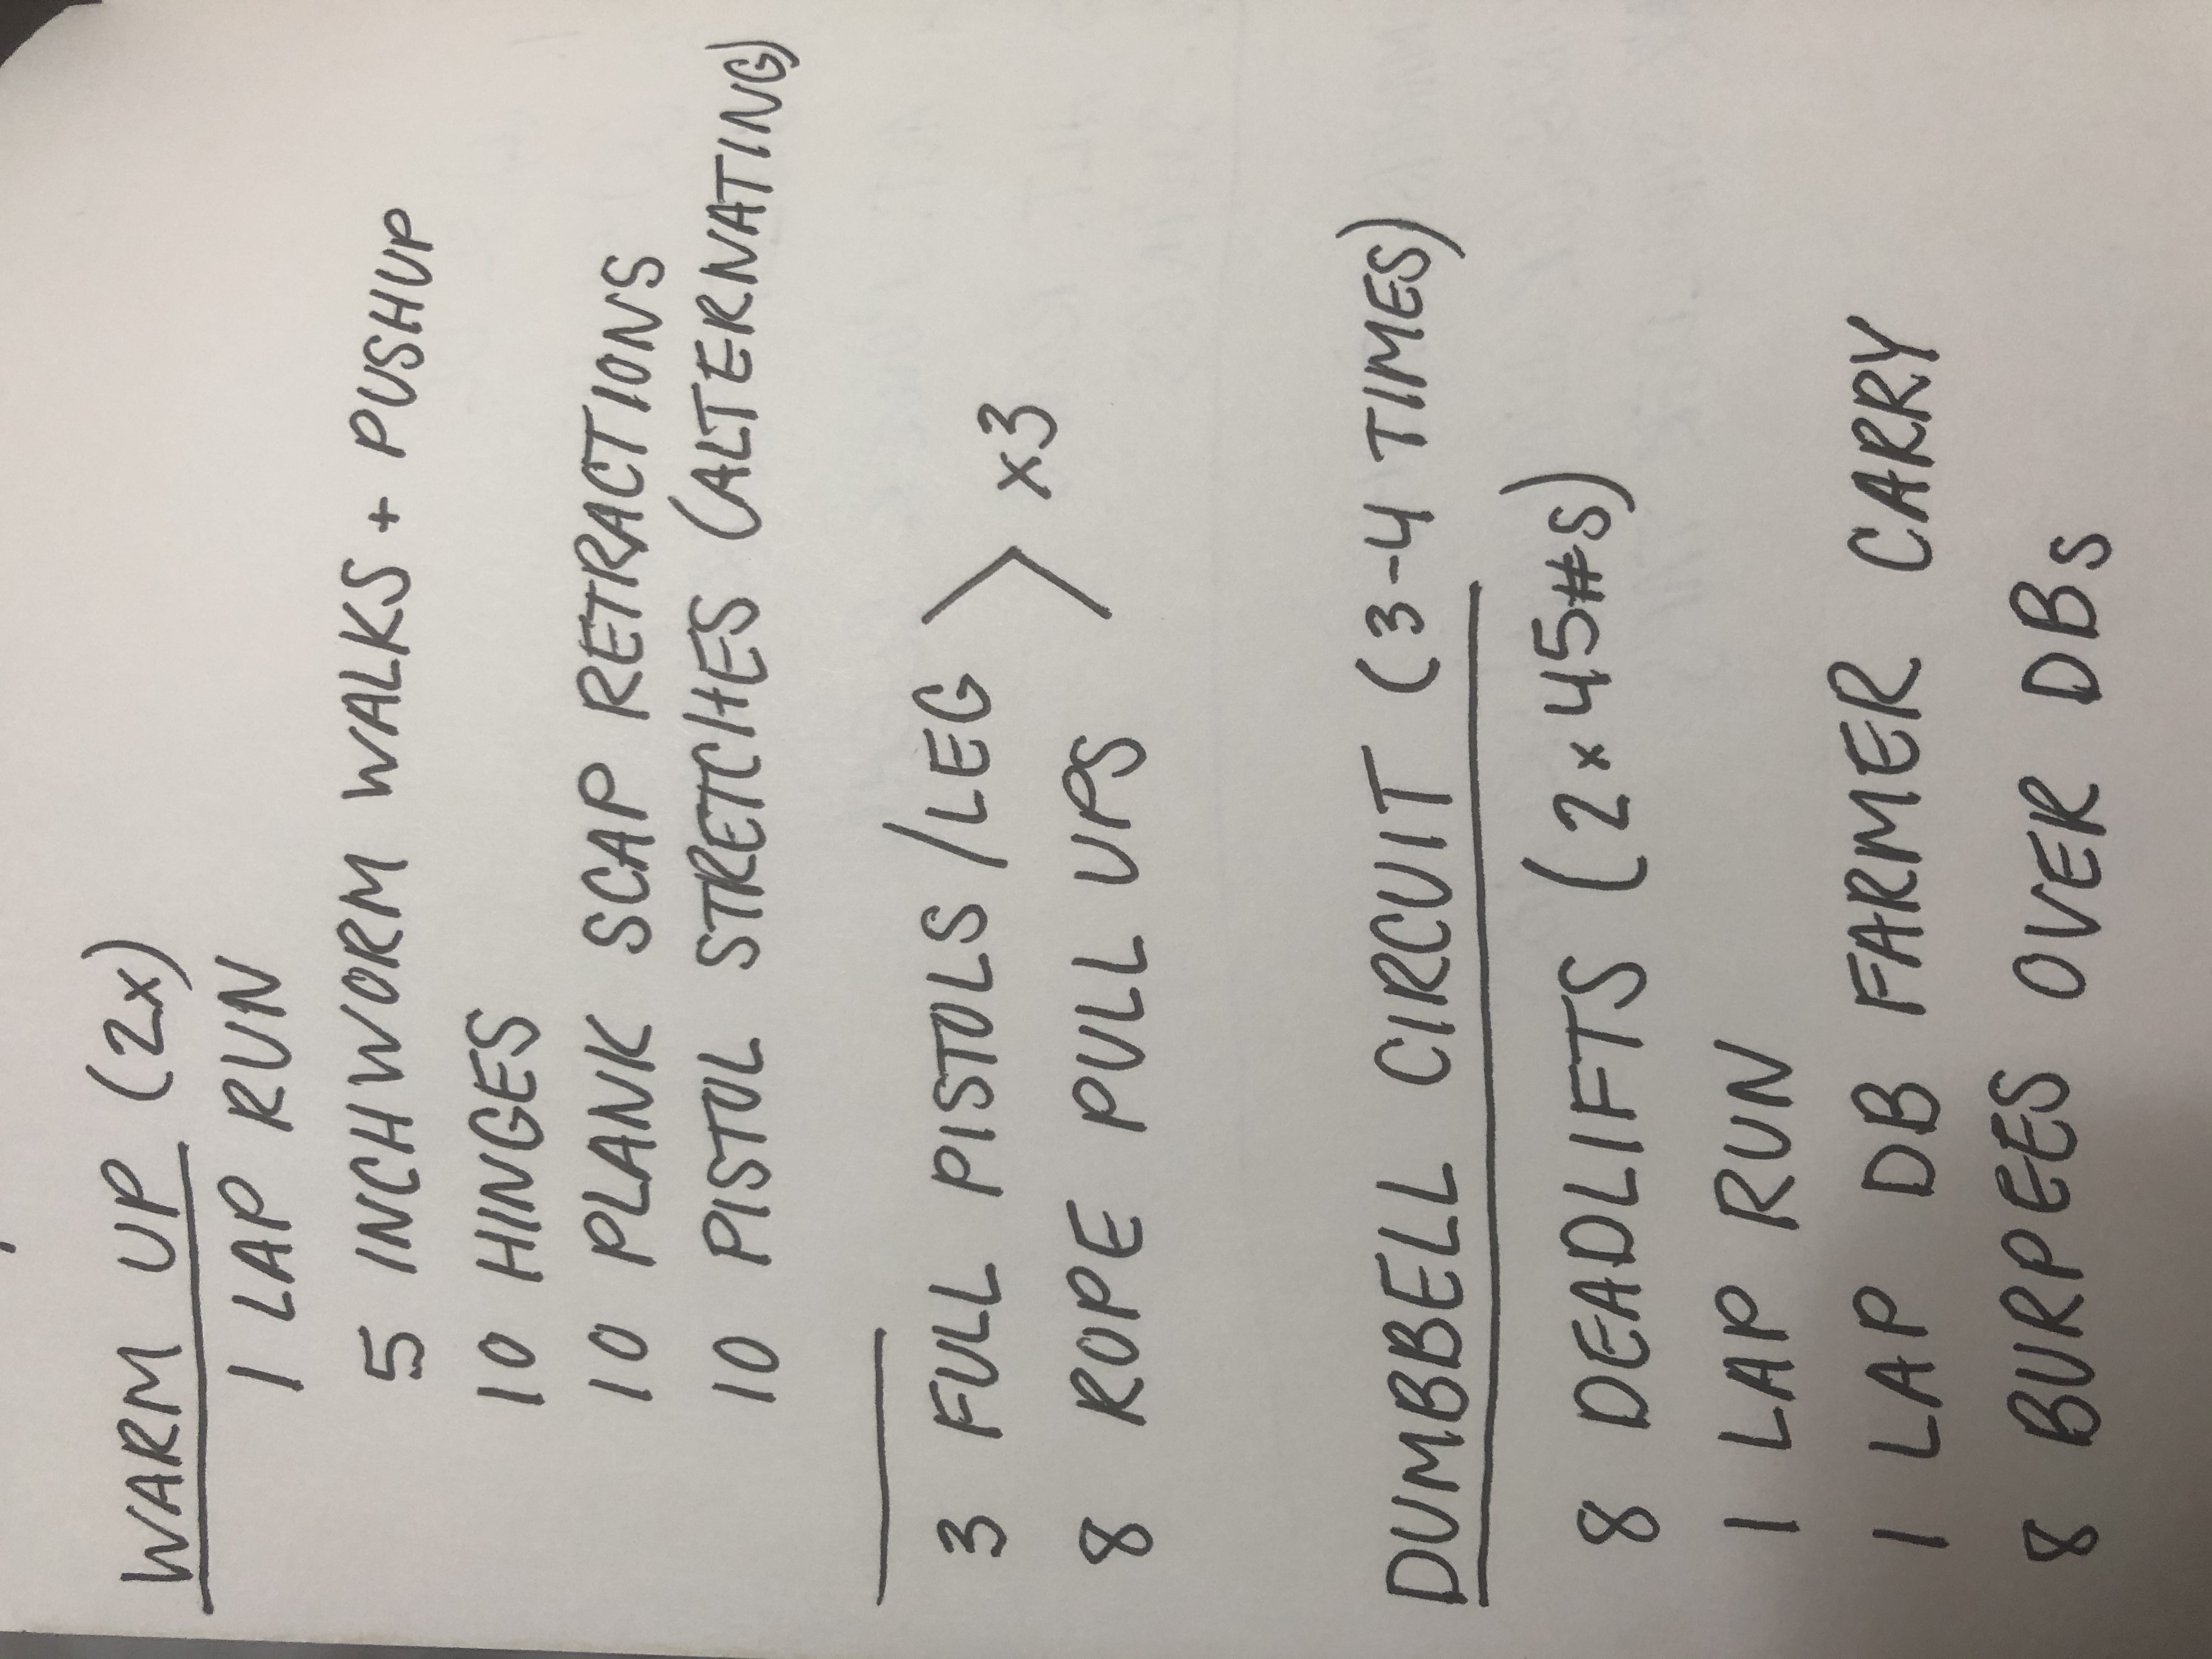 WARM UP (2x)
1 LAP RUN
5 INCHWORM WALKS + PUSHUP
10 HINGES
10 PLANK SCAP RETRACTIONS
10 PISTOL STRETCHES (ALTERNATING)
3 FULL PISTOLS/LEG > x3
8 ROPE PULL UPS
DUMBBELL CIRCUIT (3-4 TIMES)
8 DEADLIFTS (2x45#s)
1 LAP RUN
1 LAP DB FARMER CARRY
8 BURPEES OVER DBs